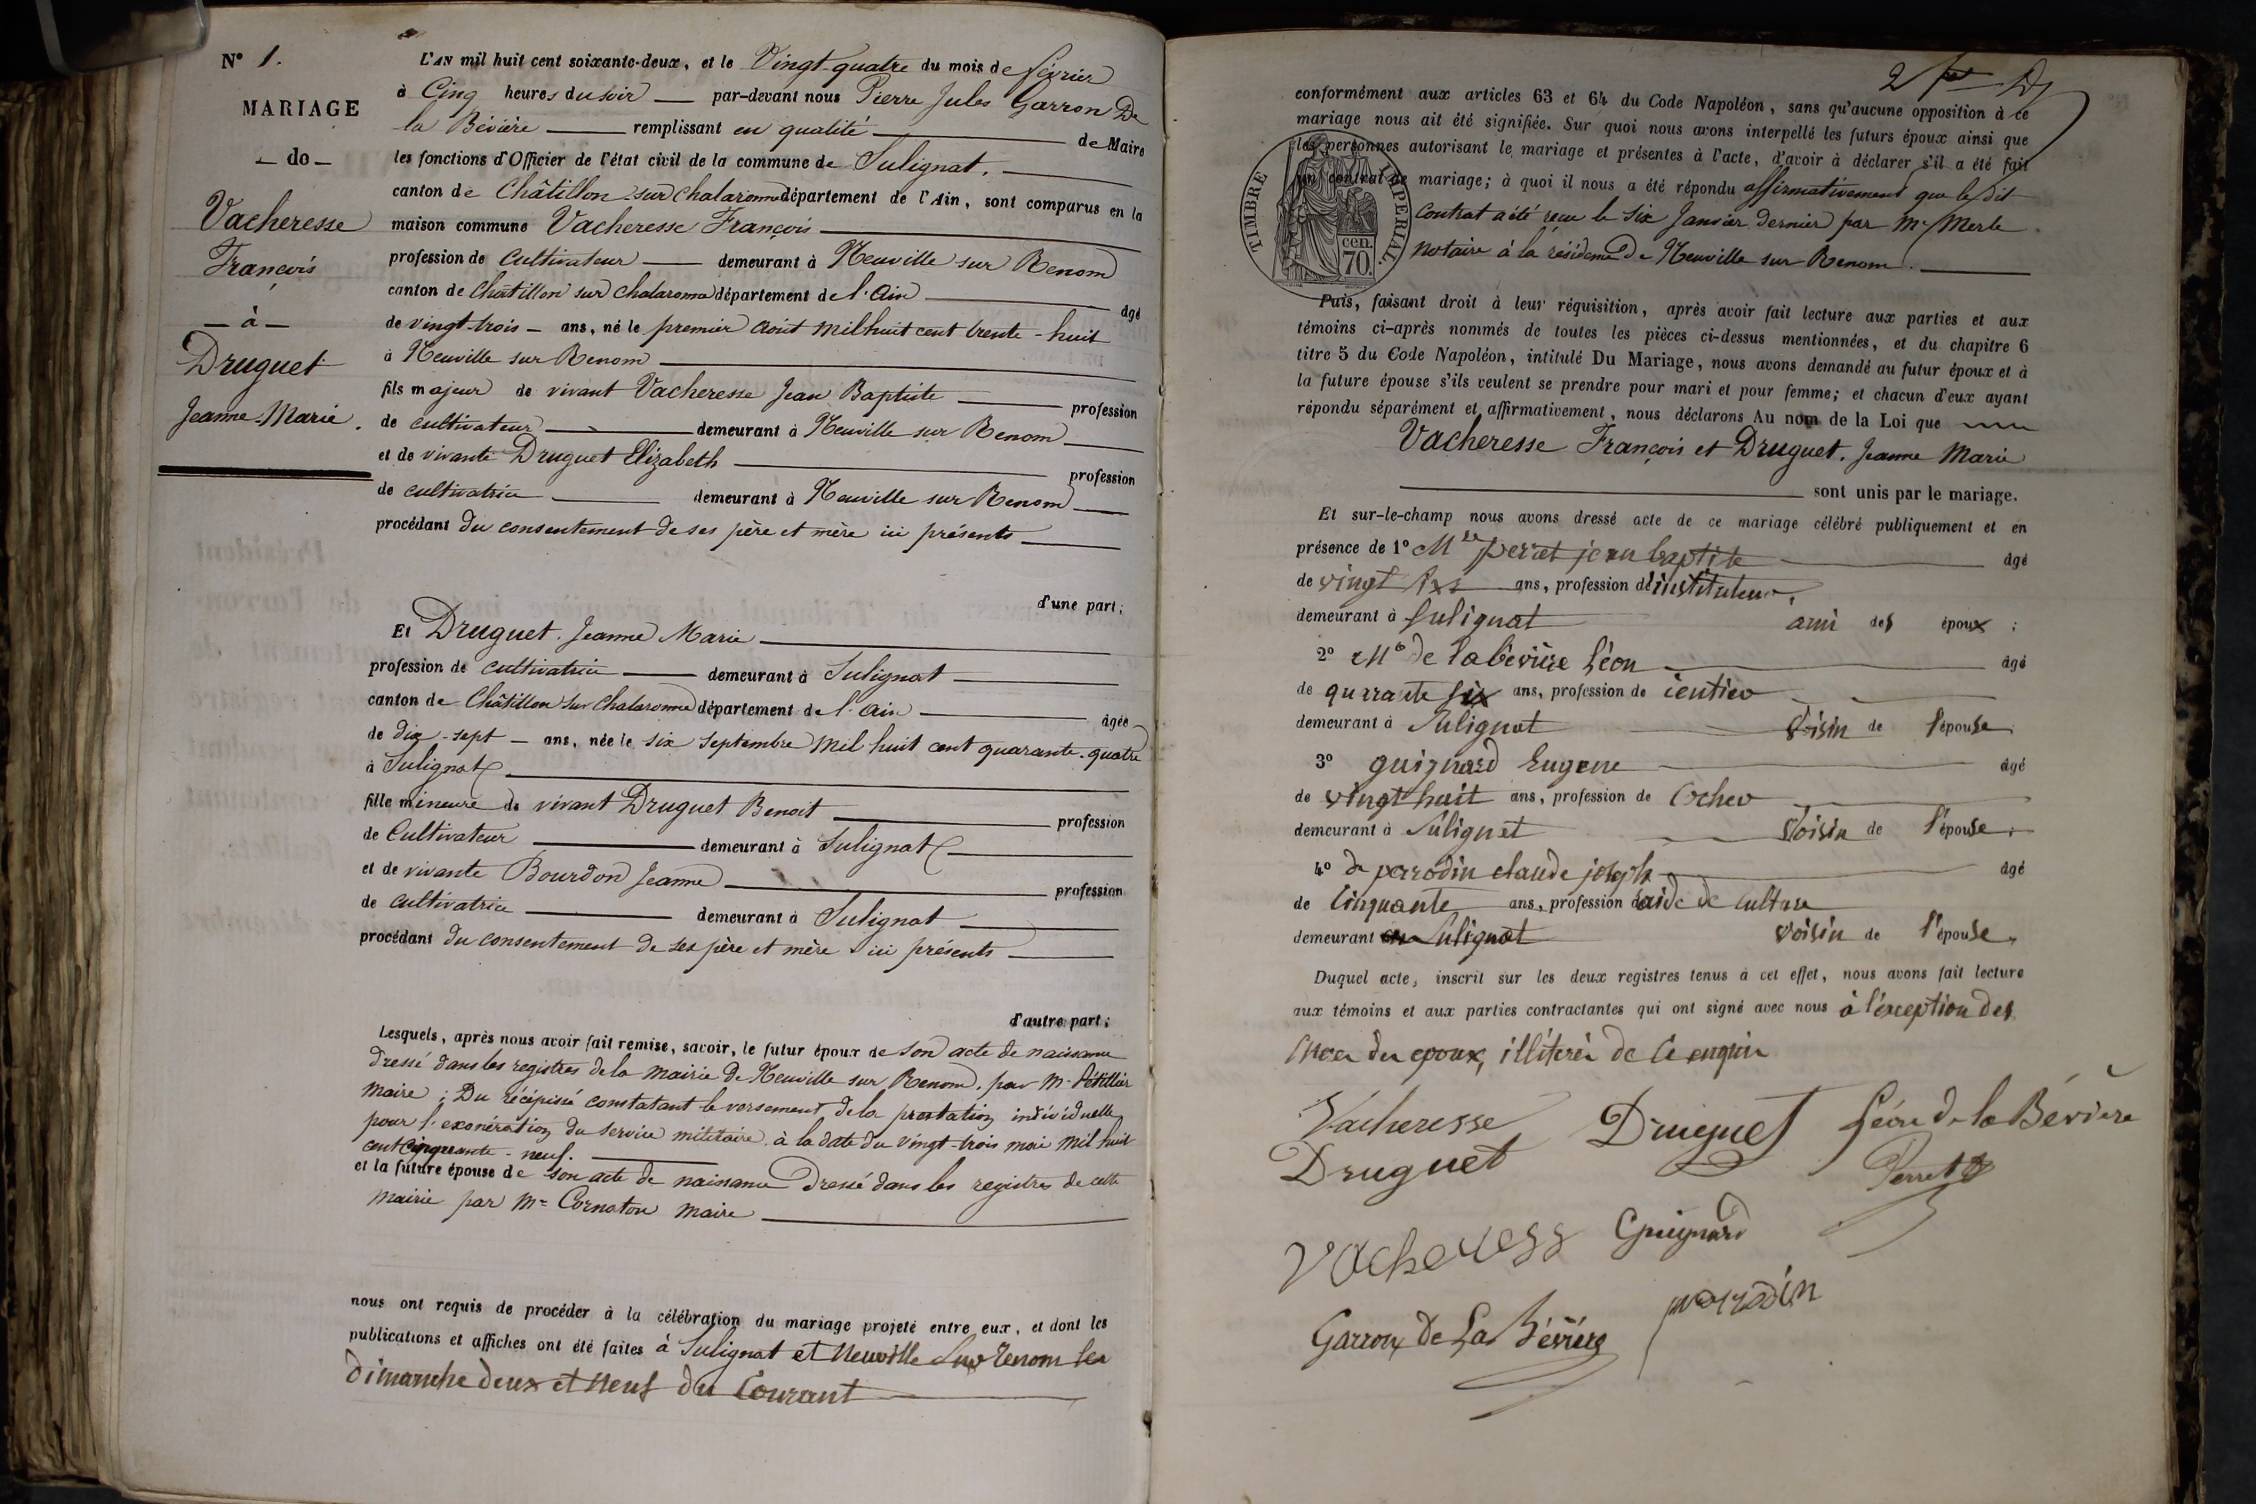 N° 1.
MARIAGE
— de —
Vacheresse
François
— à —
Druguet
Jeanne Marie.
L'AN mil huit cent soixante-deux, et le Vingt-quatre du mois de février
à Cinq heures du soir — par-devant nous Pierre Jules Garron De
la Bévière — remplissant en qualité — de Maire
les fonctions d'Officier de l'état civil de la commune de Sulignat. —
canton de Châtillon sur chalaronne département de l'Ain, sont comparus en la
maison commune Vacheresse François —
profession de Cultivateur — demeurant à Neuville sur Renom
canton de Châtillon sur chalaronne département de l'Ain — âgé
de vingt-trois — ans, né le premier août mil huit cent trente-huit
à Neuville sur Renom —
fils majeur de vivant Vacheresse Jean Baptiste — profession
de cultivateur — demeurant à Neuville sur Renom —
et de vivante Druguet Elizabeth — profession
de cultivatrice — demeurant à Neuville sur Renom —
procédant du consentement de ses père et mère ici présents —
d'une part;
Et Druguet. Jeanne Marie —
profession de cultivatrice — demeurant à Sulignat —
canton de Châtillon sur Chalaronne département de l'Ain — âgée
de dix-sept — ans, née le six Septembre mil huit cent quarante-quatre
à Sulignat —
fille mineure de vivant Druguet Benoit — profession
de Cultivateur — demeurant à Sulignat —
et de vivante Bourdon Jeanne — profession
de cultivatrice — demeurant à Sulignat —
procédant du consentement de ses père et mère ici présents —
d'autre part;
Lesquels, après nous avoir fait remise, savoir, le futur époux de son acte de naissance
dressé dans les registres de la mairie de Neuville sur Renom, par Mr
maire; Du récépissé constatant le versement de la prestation individuelle
pour l'exonération du service militaire à la date du vingt-trois mai mil huit
cent cinquante-neuf. —
et la future épouse de son acte de naissance Dressé dans les registres de cette
mairie par Mr Cornaton maire —
nous ont requis de procéder à la célébration du mariage projeté entre eux, et dont les
publications et affiches ont été faites à Sulignat et Neuville sur renom les
dimanche deux et neuf du Courant —
2
conformément aux articles 63 et 64 du Code Napoléon, sans qu'aucune opposition à ce
mariage nous ait été signifiée. Sur quoi nous avons interpellé les futurs époux ainsi que
les personnes autorisant le mariage et présentes à l'acte, d'avoir à déclarer s'il a été fait
un contrat de mariage; à quoi il nous a été répondu affirmativement que le dit
contrat a été reçu le six Janvier dernier par Me Merle
notaire à la résidence de Neuville sur Renom. —
TIMBRE IMPERIAL.
70.
cen.
Puis, faisant droit à leur réquisition, après avoir fait lecture aux parties et aux
témoins ci-après nommés de toutes les pièces ci-dessus mentionnées, et du chapitre 6
titre 5 du Code Napoléon, intitulé Du Mariage, nous avons demandé au futur époux et à
la future épouse s'ils veulent se prendre pour mari et pour femme; et chacun d'eux ayant
répondu séparément et affirmativement, nous déclarons Au nom de la Loi que
Vacheresse François et Druguet. Jeanne Marie
— sont unis par le mariage.
Et sur-le-champ nous avons dressé acte de ce mariage célébré publiquement et en
présence de 1° perret jean baptiste — âgé
de vingt ans, profession d'instituteur,
demeurant à Sulignat ami des époux;
2° de la bévière Léon — âgé
de quarante six ans, profession de rentier
demeurant à Sulignat — voisin de l'épouse
3° guignard Eugene — âgé
de vingt huit ans, profession de Cocher
demeurant à Sulignat — Voisin de l'épouse;
4° de perrodin claude joseph — âgé
de Cinquante ans, profession d'aide de culture
demeurant Sulignat voisin de l'épouse.
Duquel acte, inscrit sur les deux registres tenus à cet effet, nous avons fait lecture
aux témoins et aux parties contractantes qui ont signé avec nous à l'exception des
époux, de ce enquis
Vacheresse Druguet Léon de la Bévière
Druguet Perret
Vacheress Guignard
perrodin
Garron de La Bévière